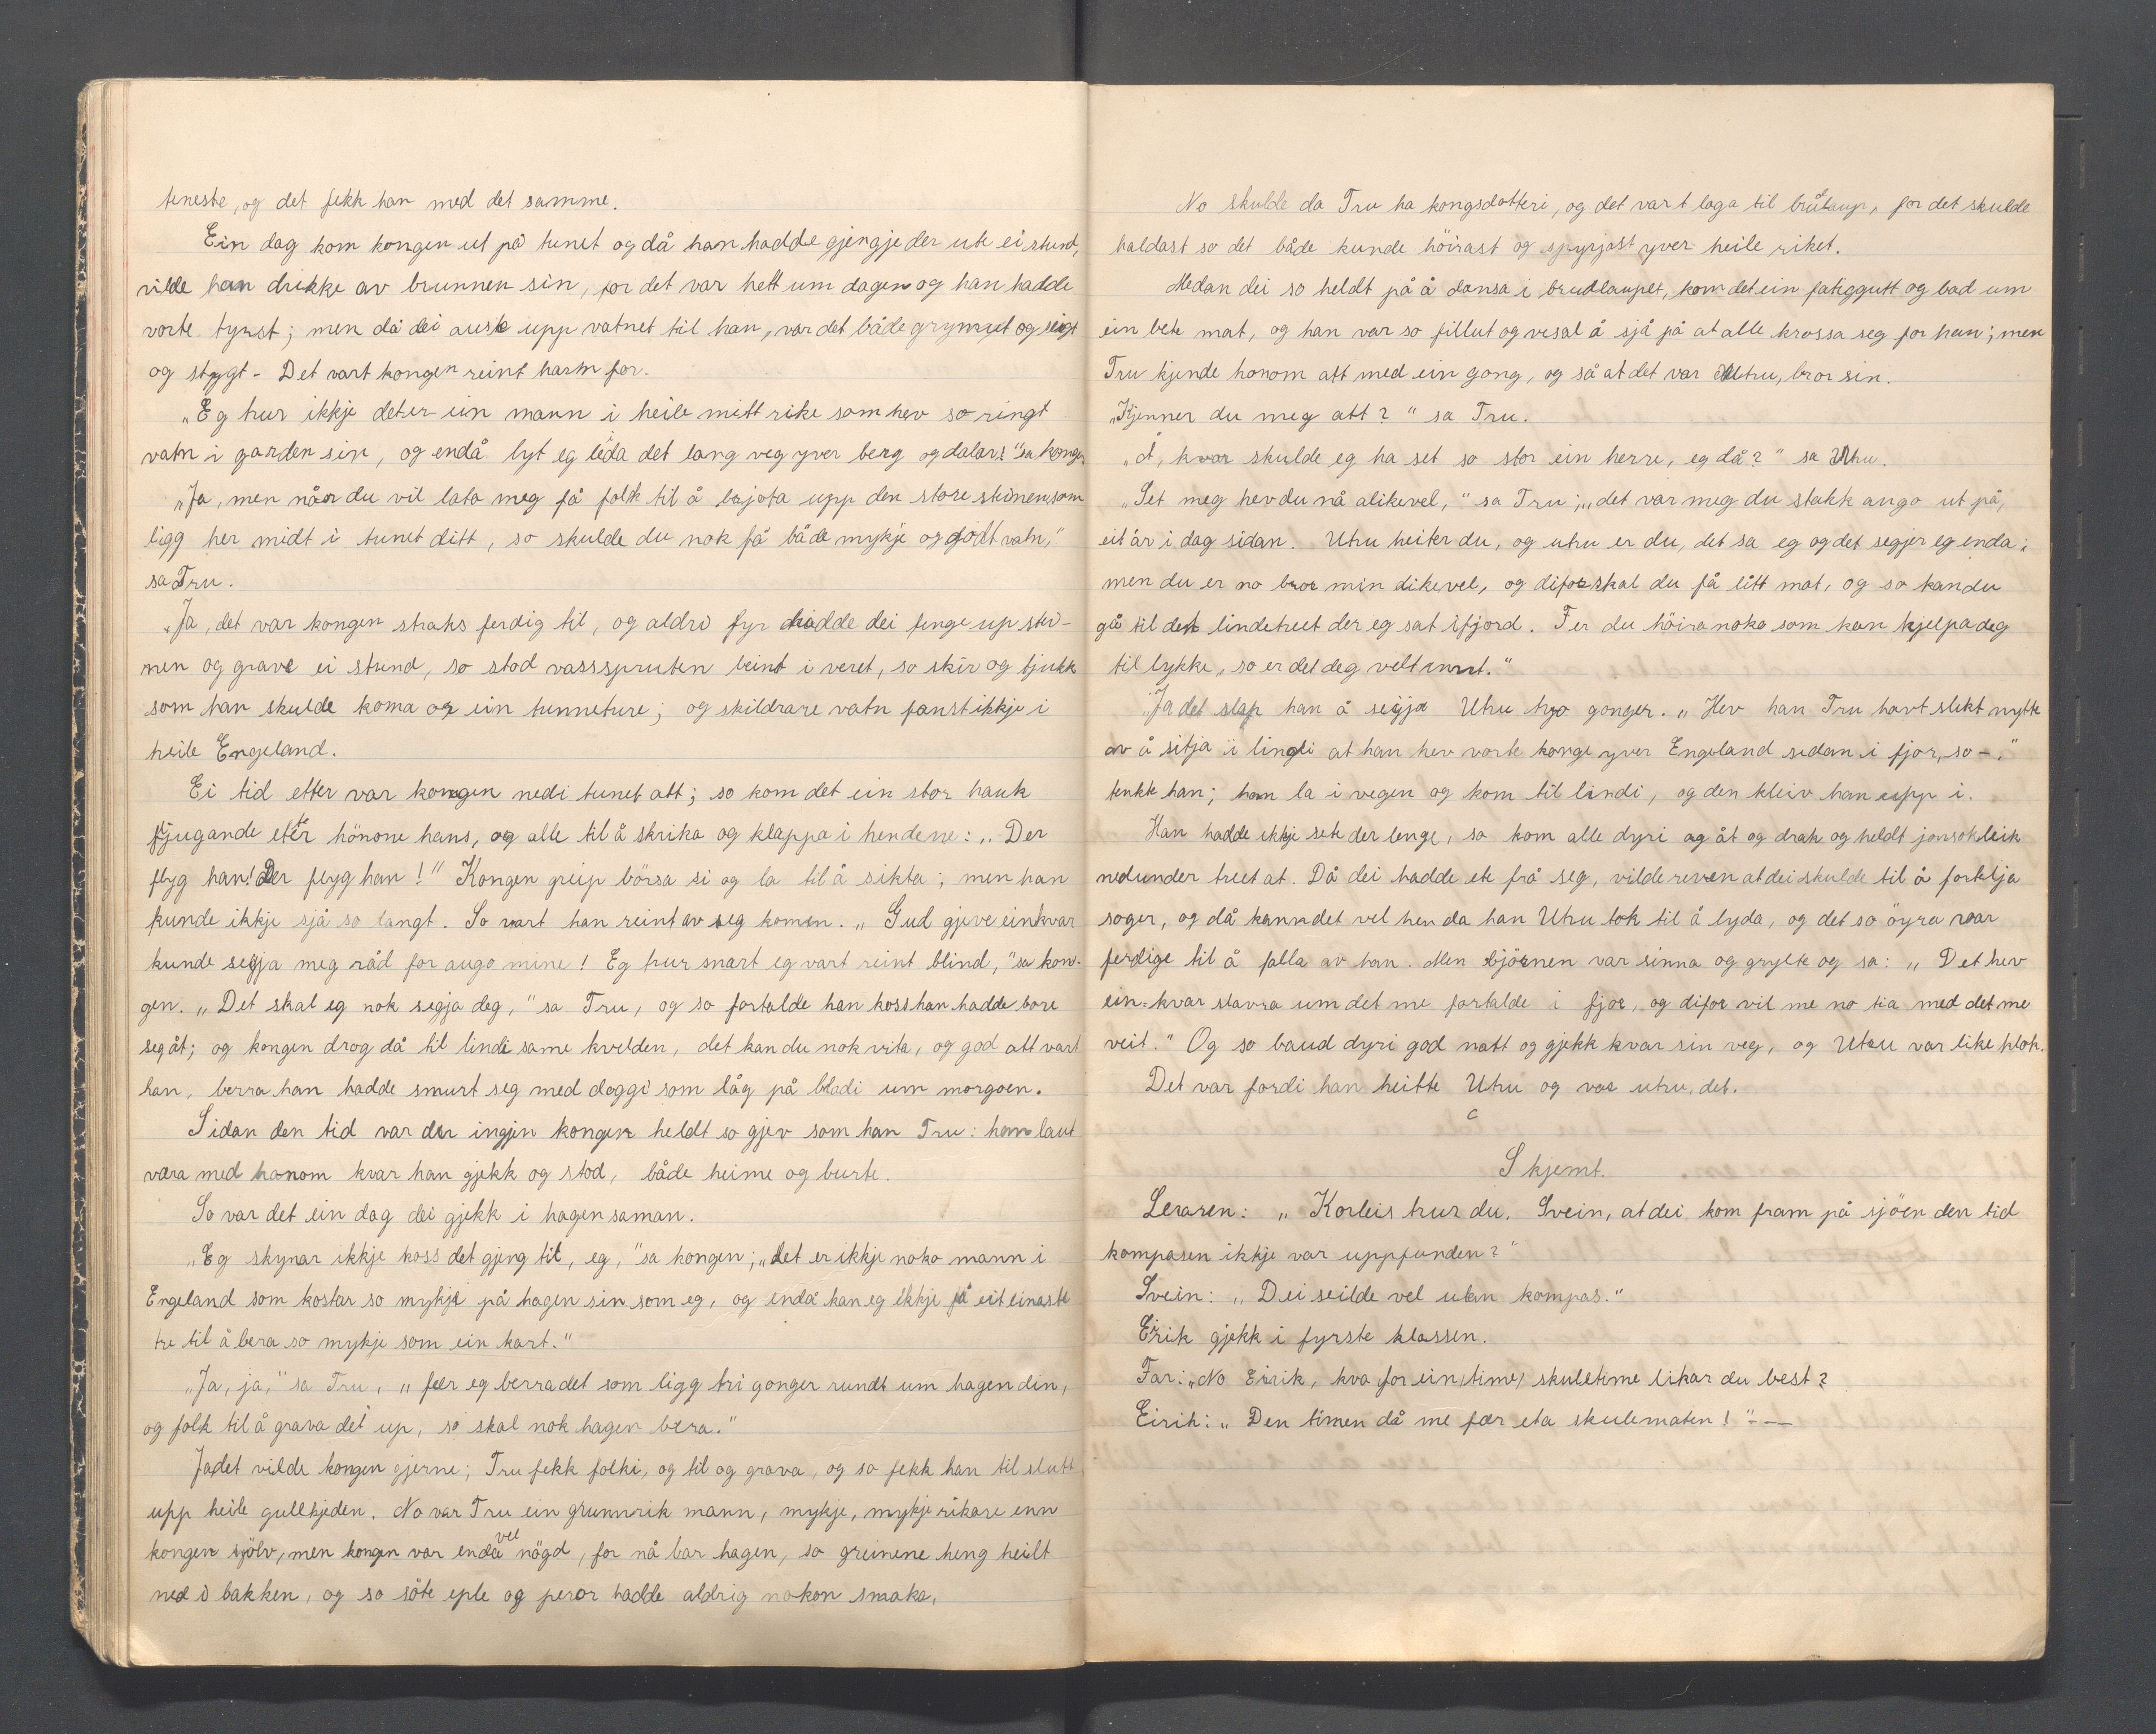 teneste, og det fekk han med det samme.
Ein dag kom kongen ut på tunet og då han hadde gjengje der ute ei stund,
vilde han drikke av brunnen sin, for det var hett um dagen og han hadde
vorte tyrst; men då dei auste upp vatnet til han, var det både grymut og seigt
og stygt - Det vart kongen reint harm for.
„Eg trur ikkje det er ein mann i heile mitt rike som hev so ringt
vatn i garden sin, og endå lyt eg leida det lang veg yver berg og dalar!" sa kongen.
„Ja, men når du vil lata meg få folk til å brjota upp den store steinen som
ligg her midt i tunet ditt, so skulde du nok få både mykje og godt vatn,"
sa Tru.
„Ja, det var kongen straks ferdig til, og aldri fyr hadde dei fenge up stei-
nen og grave ei stund, so stod vassspruten beint i veret, so skir og tjukk
som han skulde koma or ein tunneture; og skildrare vatn fanst ikkje i
heile Engeland.
Ei tid etter var kongen nedi tunet att; so kom det ein stor hauk
fljugande etter hönone hans, og alle til å skrika og klappa i hendene: „Der
flyg han! Der flyg han!" Kongen greip börsa si og la til å sikta; men han
kunde ikkje sjå so langt. So vart han reint av seg komen. „Gud gjeve einkvar
kunde segja meg råd for augo mine! Eg trur snart eg vart reint blind," sa kon-
gen. „Det skal eg nok segja deg," sa Tru, og so fortalde han koss han hadde bore
seg åt; og kongen drog då til lindi same kvelden, det kan du nok vita, og god att vart
han, berra han hadde smurt seg med doggi som låg på bladi um morgoen.
Sidan den tid var der ingjen kongen heldt so gjev som han Tru: han laut
væra med honom kvar han gjekk og stod, både heime og burte.
So var det ein dag dei gjekk i hagen saman.
„Eg skynar ikkje koss det gjeng til, eg," sa kongen; „det er ikkje noko mann i
Engeland som kostar so mykje på hagen sin som eg, og endå kan eg ikkje få eit einaste
tre til å bera so mykje som ein kart."
„Ja, ja," sa Tru, „fær eg berra det som ligg tri gonger rundt um hagen din,
og folk til å grava det up, so skal nok hagen bera."
Ja det vilde kongen gjerne; Tru fekk folki, og til og grava, og so fekk han til slutt
upp heile gullkjeden. No var Tru ein grunnrik mann, mykje, mykje rikare enn
kongen sjölv, men kongen var endå vel nögd, for nå bar hagen, so greinene heng heilt
ned i bakken, og so söte eple og peror hadde aldrig nokon smaka.
No skulde da Tru ha kongsdotteri, og det vart laga til brudlaup, for det skulde
haldast so det både kunde höirast og spyrjast yver heile riket.
Medan dei so heldt på å dansa i brudlaupet, kom det ein fatiggutt og bad um
ein bete mat, og han var so fillut og vesal å sjå på at alle krossa seg for han; men
Tru kjende honom att med ein gong, og så at det var Utru, bror sin.
„Kjenner du meg att?" sa Tru.
„Å, kvar skulde eg ha set so stor ein herre, eg då?" sa Utru.
„Set meg hev du nå alikevel," sa Tru; „det var meg du stakk augo ut på,
eit år i dag sidan. Utru heiter du, og utru er du, det sa eg og det segjer eg enda;
men du er no bror min likevel, og difor skal du få litt mat, og so kan du
gå til den lindetreet der eg sat ifjord. Fer du höira noko som kan hjelpa deg
til lykke, so er det deg velt unnt."
„Ja det slap han å seigja Utru tvo gonger. „Hev han Tru havt slikt nytte
av å sitja i lindi at han hev vorte konge yver Engeland sidan i fjor, so -."
tenkte han; han la i vegen og kom til lindi, og den kleiv han upp i.
Han hadde ikkje sete der lenge, so kom alle dyri og åt og drak og heldt jonsokleik
nedunder treet at. Då dei hadde ete frå seg, vilde reven at dei skulde til å fortelja
soger, og då kann det vel henda han Utru tok til å lyda, og det so öyra var
ferdige til å falla av han. Men björnen var sinna og grylte og sa: „Det hev
ein-kvar slavra um det me fortalde i fjor, og difor vil me no tia med det me
veit." Og so baud dyri god natt og gjekk kvar sin veg, og Utru var like klok.
Det var fordi han heitte Utru og var utru, det.
Skjemt.
Læraren: „Korleis trur du, Svein, at dei kom fram på sjöen den tid
kompasen ikkje var uppfunden?"
Svein: „Dei seilde vel utan kompas."
Eirik gjekk i fyrste klassen.
Far: „No Eirik, kva for ein (time) skuletime likar du best?
Eirik: „Den timen då me fær eta skulematen!" - —